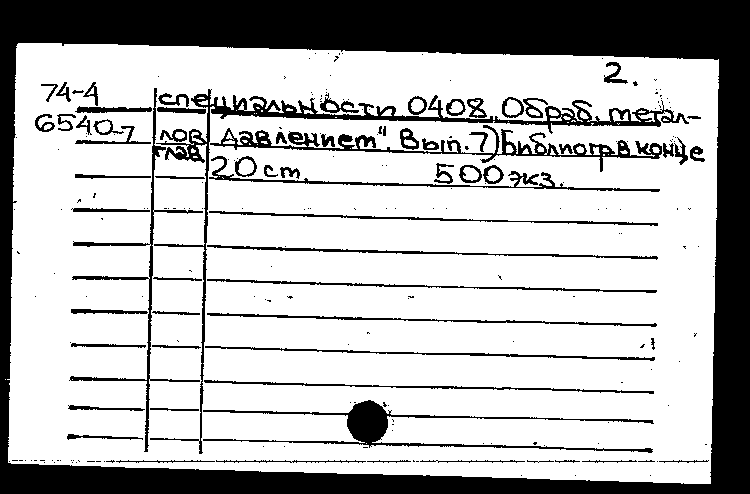 2.
74-4 специальности 0408. Обраб. метал-
6540-7 лов давлением". Вып. 7) Библиогр в конце
глав 20 ст. 500 экз.